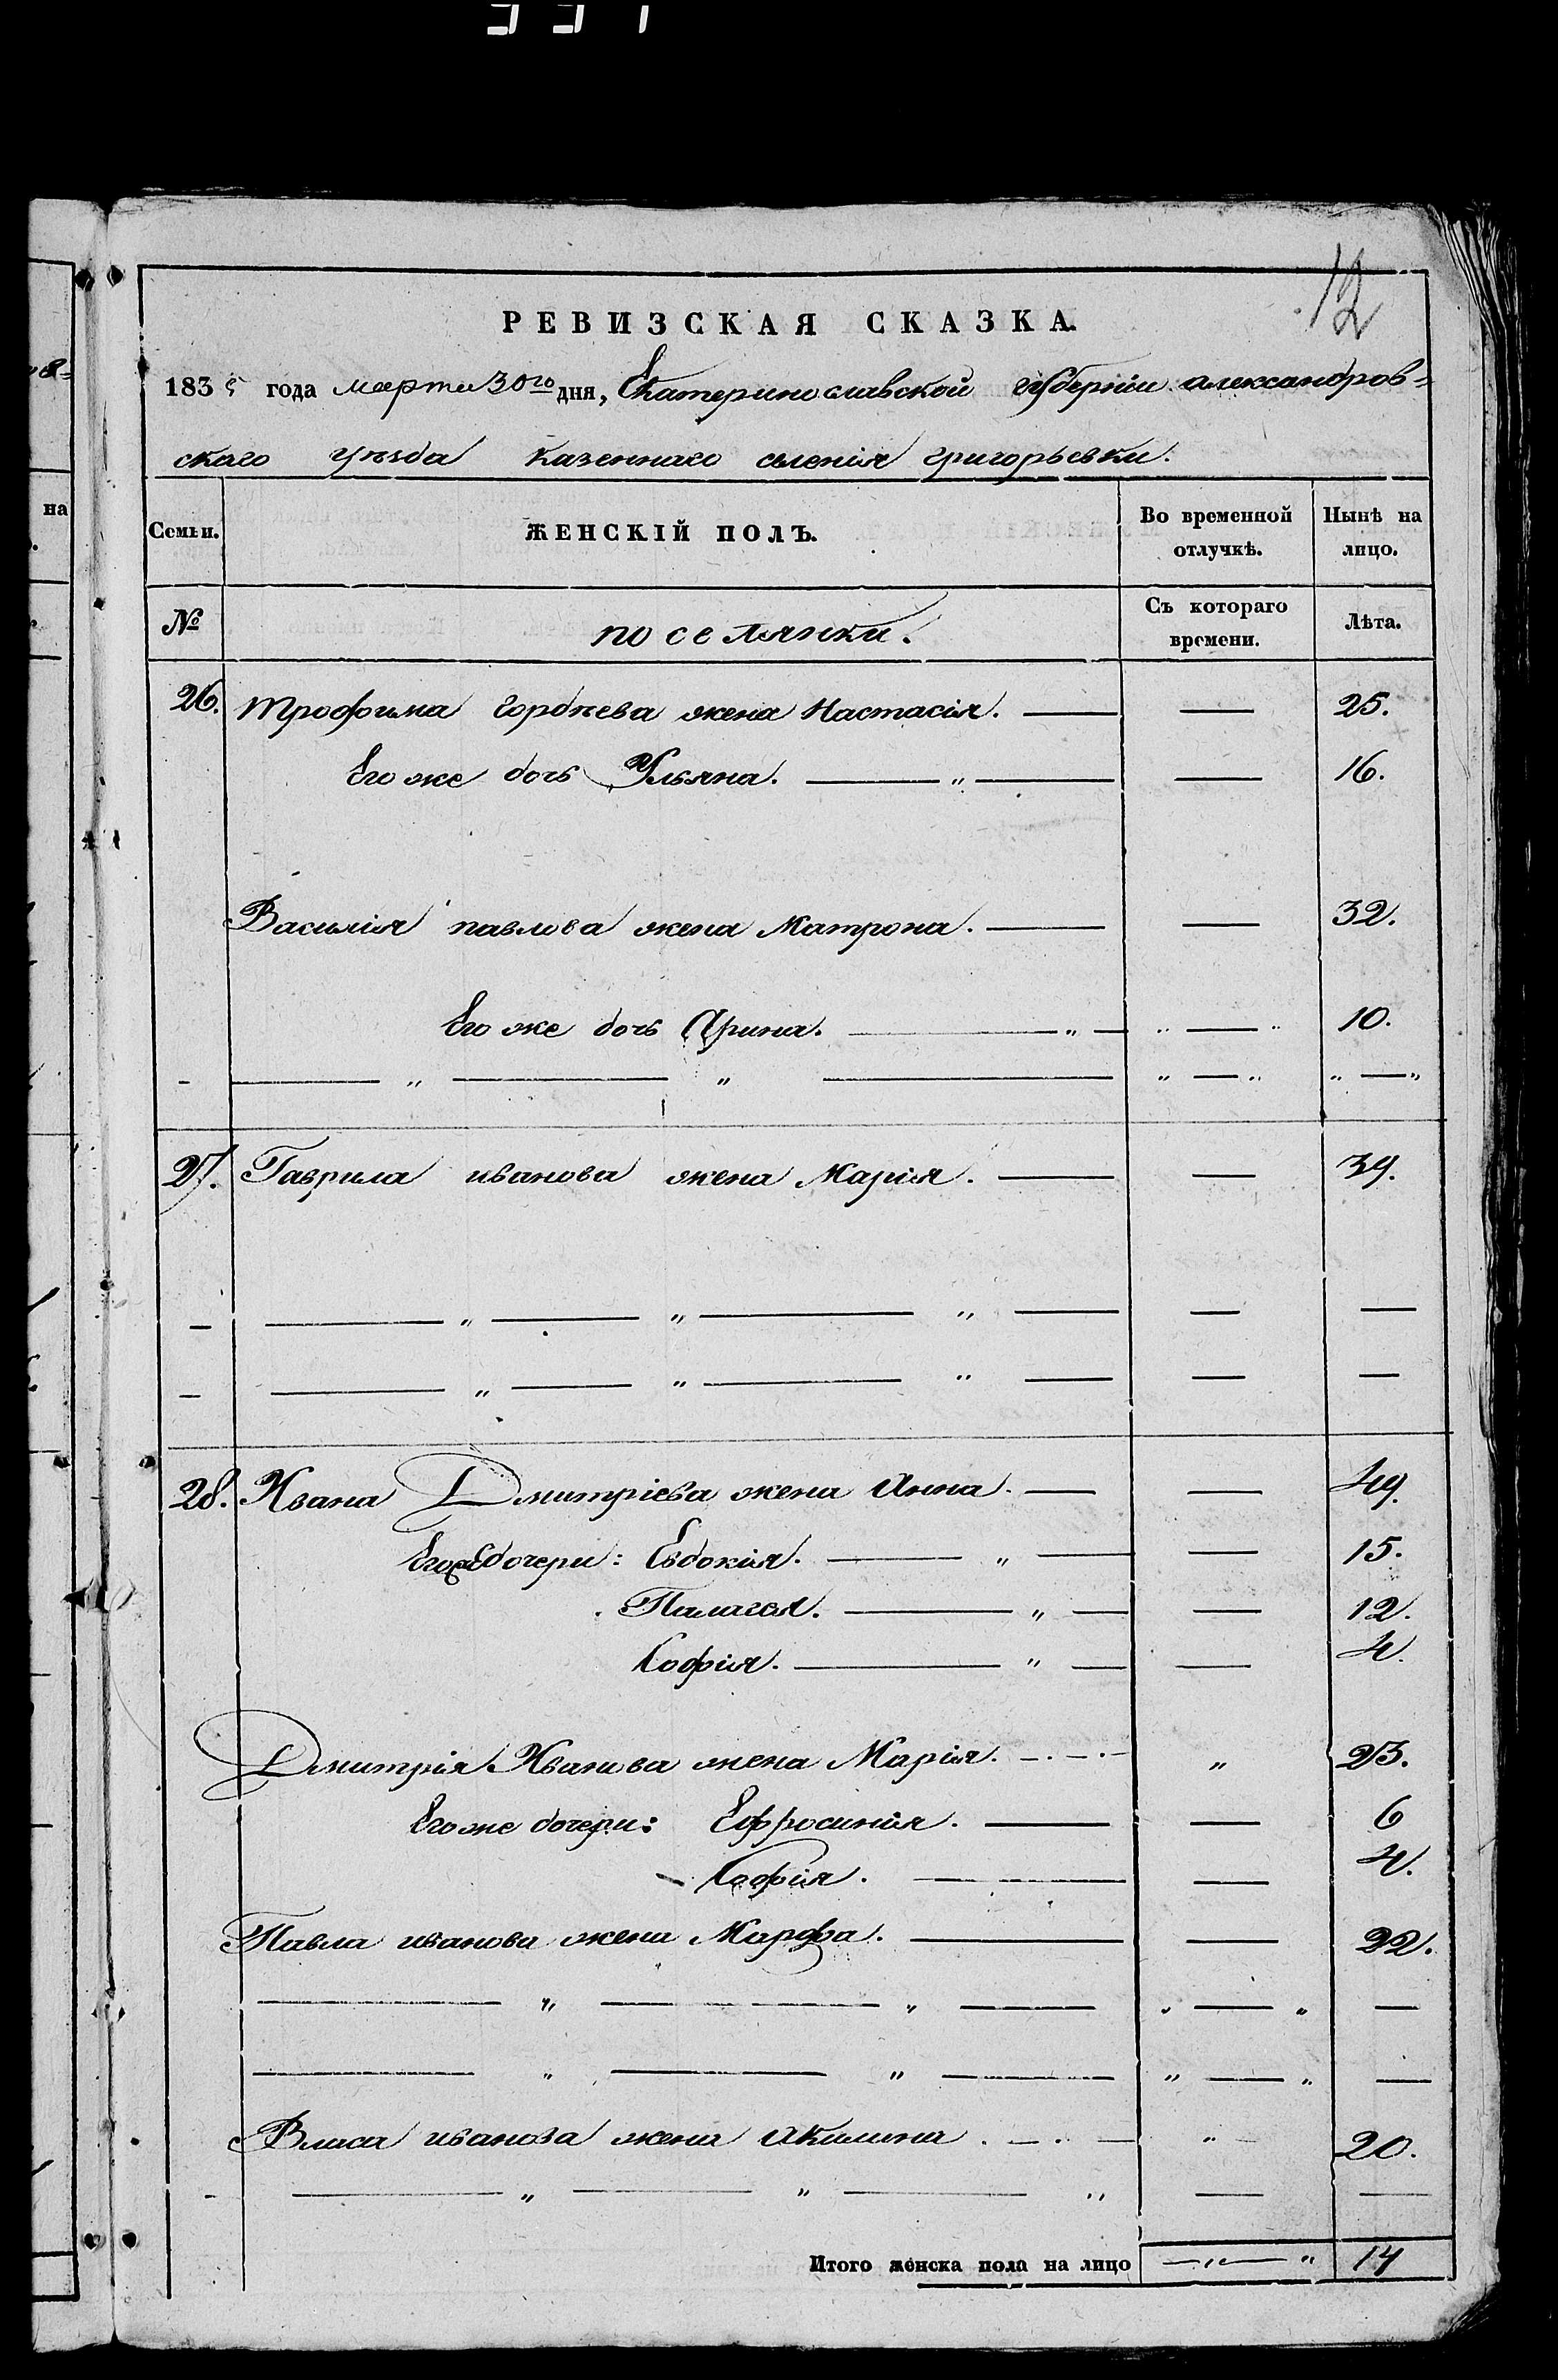 12
РЕВИЗСКАЯ СКАЗКА.
1835 года марта 30го дня, Екатеринославской губерніи александров=
скаго уѣзда казеннаго селенія григорьевки.
Семьи. ЖЕНСКІЙ ПОЛЪ. Во временной отлучкѣ. Нынѣ на лицо.
№ поселянки. Съ котораго времени. Лѣта.
26. трофима гордѣева жена Настасія. — — 25.
Его же дочь Ульяна. — " — — 16.
Василія павлова жена Матрона. — — 32.
Его же дочь Арина. — " — " — " 10.
- — " — " — " — " " — "
27. Гаврила иванова жена Марія. — — 39.
- — " — " — " — — —
- — " — " — " — — —
28. Ивана Дмитріева жена Анна. — — 49.
Егоже дочери: Евдокія. — " — — 15.
Палагея. — " — — 12.
Софія. — " — — 4.
Дмитрія Иванова жена Марія. — . — . — " 23.
Егоже дочери: Ефросинія. — — 6
Софія. — — 4.
Павла иванова жена Марфа. — — 22.
— " — " — " — " —
— " — " — " — " —
Власа иванова жена Акилина . — . — " 20.
- — " — " — " — —
Итого женска пола на лицо — " — " 14
на